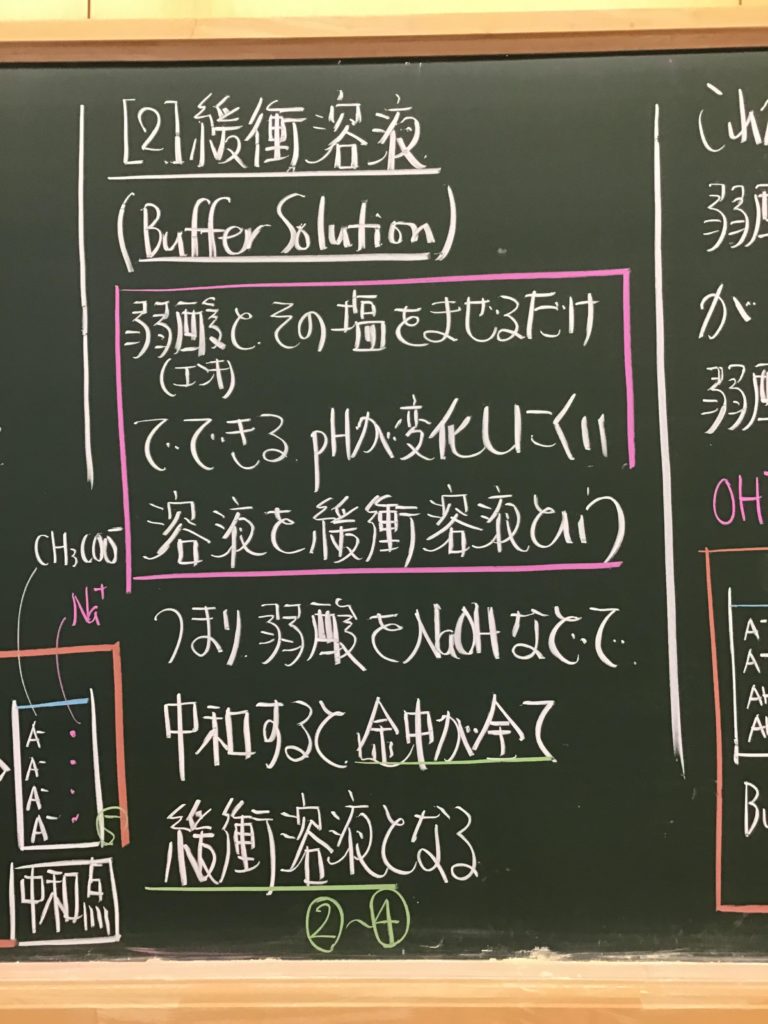 [2]緩衝溶液
(Buffer Solution)
弱酸とその塩をまぜるだけ
(エンオ)
でできるpHが変化しにくい
溶液を緩衝溶液という
つまり弱酸をNaOHなどで
中和すると途中が全て
緩衝溶液となる
②～④
CH₃COO⁻
Na⁺
A⁻
A⁻
A⁻
A⁻
⑤
中和点
これ
弱酸
が
弱酸
OH⁻
A⁻
A⁻
AH
AH
Bu